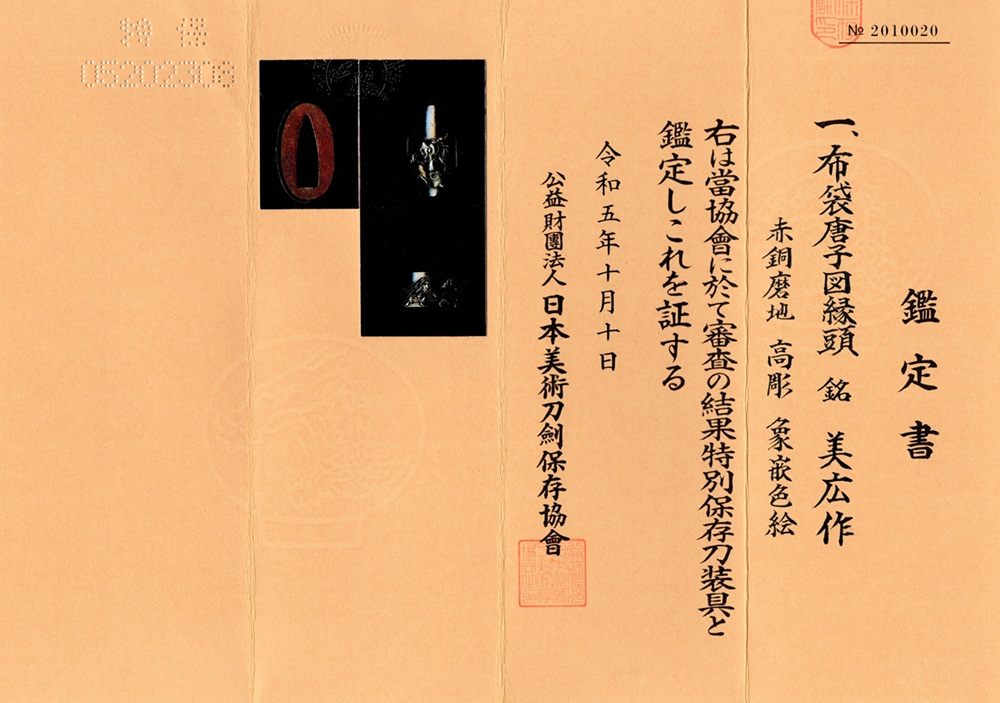 № 2010020
鑑定書
一、布袋唐子図縁頭 銘 美広作
赤銅磨地 高彫 象嵌色絵
右は當協會に於て審査の結果特別保存刀装具と
鑑定しこれを証する
令和五年十月十日
公益財團法人 日本美術刀劍保存協會
特保
05202308